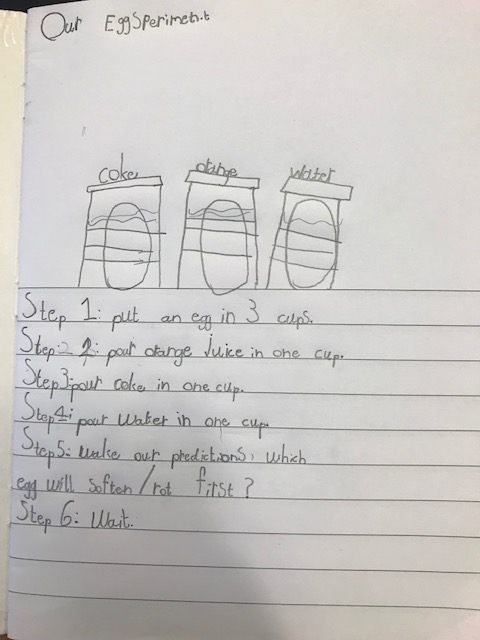 Our EggSperiment
coke orange water
Step 1: put an egg in 3 cups.
Step 2: pour orange Juice in one cup.
Step3: pour coke in one cup.
Step4: pour Water in one cup.
Step5: make our predictions, which
egg will soften/rot first?
Step 6: Wait.